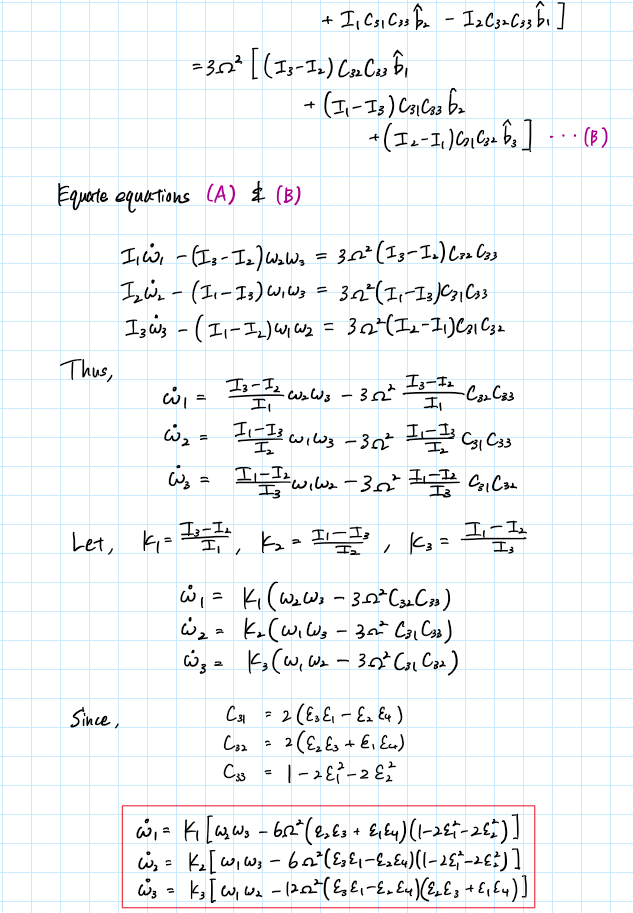 + I₁C₃₁C₃₃ b̂₂ − I₂C₃₂C₃₃ b̂₁ ]
= 3Ω² [ (I₃−I₂) C₃₂C₃₃ b̂₁
+ (I₁−I₃) C₃₁C₃₃ b̂₂
+ (I₂−I₁) C₃₁C₃₂ b̂₃ ] ··· (B)
Equate equations (A) & (B)
I₁ω̇₁ − (I₃−I₂)ω₂ω₃ = 3Ω²(I₃−I₂)C₃₂C₃₃
I₂ω̇₂ − (I₁−I₃)ω₁ω₃ = 3Ω²(I₁−I₃)C₃₁C₃₃
I₃ω̇₃ − (I₁−I₂)ω₁ω₂ = 3Ω²(I₂−I₁)C₃₁C₃₂
Thus,
ω̇₁ = (I₃−I₂)/I₁ ω₂ω₃ − 3Ω² (I₃−I₂)/I₁ C₃₂C₃₃
ω̇₂ = (I₁−I₃)/I₂ ω₁ω₃ − 3Ω² (I₁−I₃)/I₂ C₃₁C₃₃
ω̇₃ = (I₁−I₂)/I₃ ω₁ω₂ − 3Ω² (I₁−I₂)/I₃ C₃₁C₃₂
Let, K₁ = (I₃−I₂)/I₁ , K₂ = (I₁−I₃)/I₂ , K₃ = (I₁−I₂)/I₃
ω̇₁ = K₁(ω₂ω₃ − 3Ω²C₃₂C₃₃)
ω̇₂ = K₂(ω₁ω₃ − 3Ω² C₃₁C₃₃)
ω̇₃ = K₃(ω₁ω₂ − 3Ω² C₃₁C₃₂)
Since, C₃₁ = 2(ε₃ε₁ − ε₂ε₄)
C₃₂ = 2(ε₂ε₃ + ε₁ε₄)
C₃₃ = 1 − 2ε₁² − 2ε₂²
ω̇₁ = K₁[ω₂ω₃ − 6Ω²(ε₂ε₃ + ε₁ε₄)(1−2ε₁²−2ε₂²)]
ω̇₂ = K₂[ω₁ω₃ − 6Ω²(ε₃ε₁−ε₂ε₄)(1−2ε₁²−2ε₂²)]
ω̇₃ = K₃[ω₁ω₂ − 12Ω²(ε₃ε₁−ε₂ε₄)(ε₂ε₃+ε₁ε₄)]